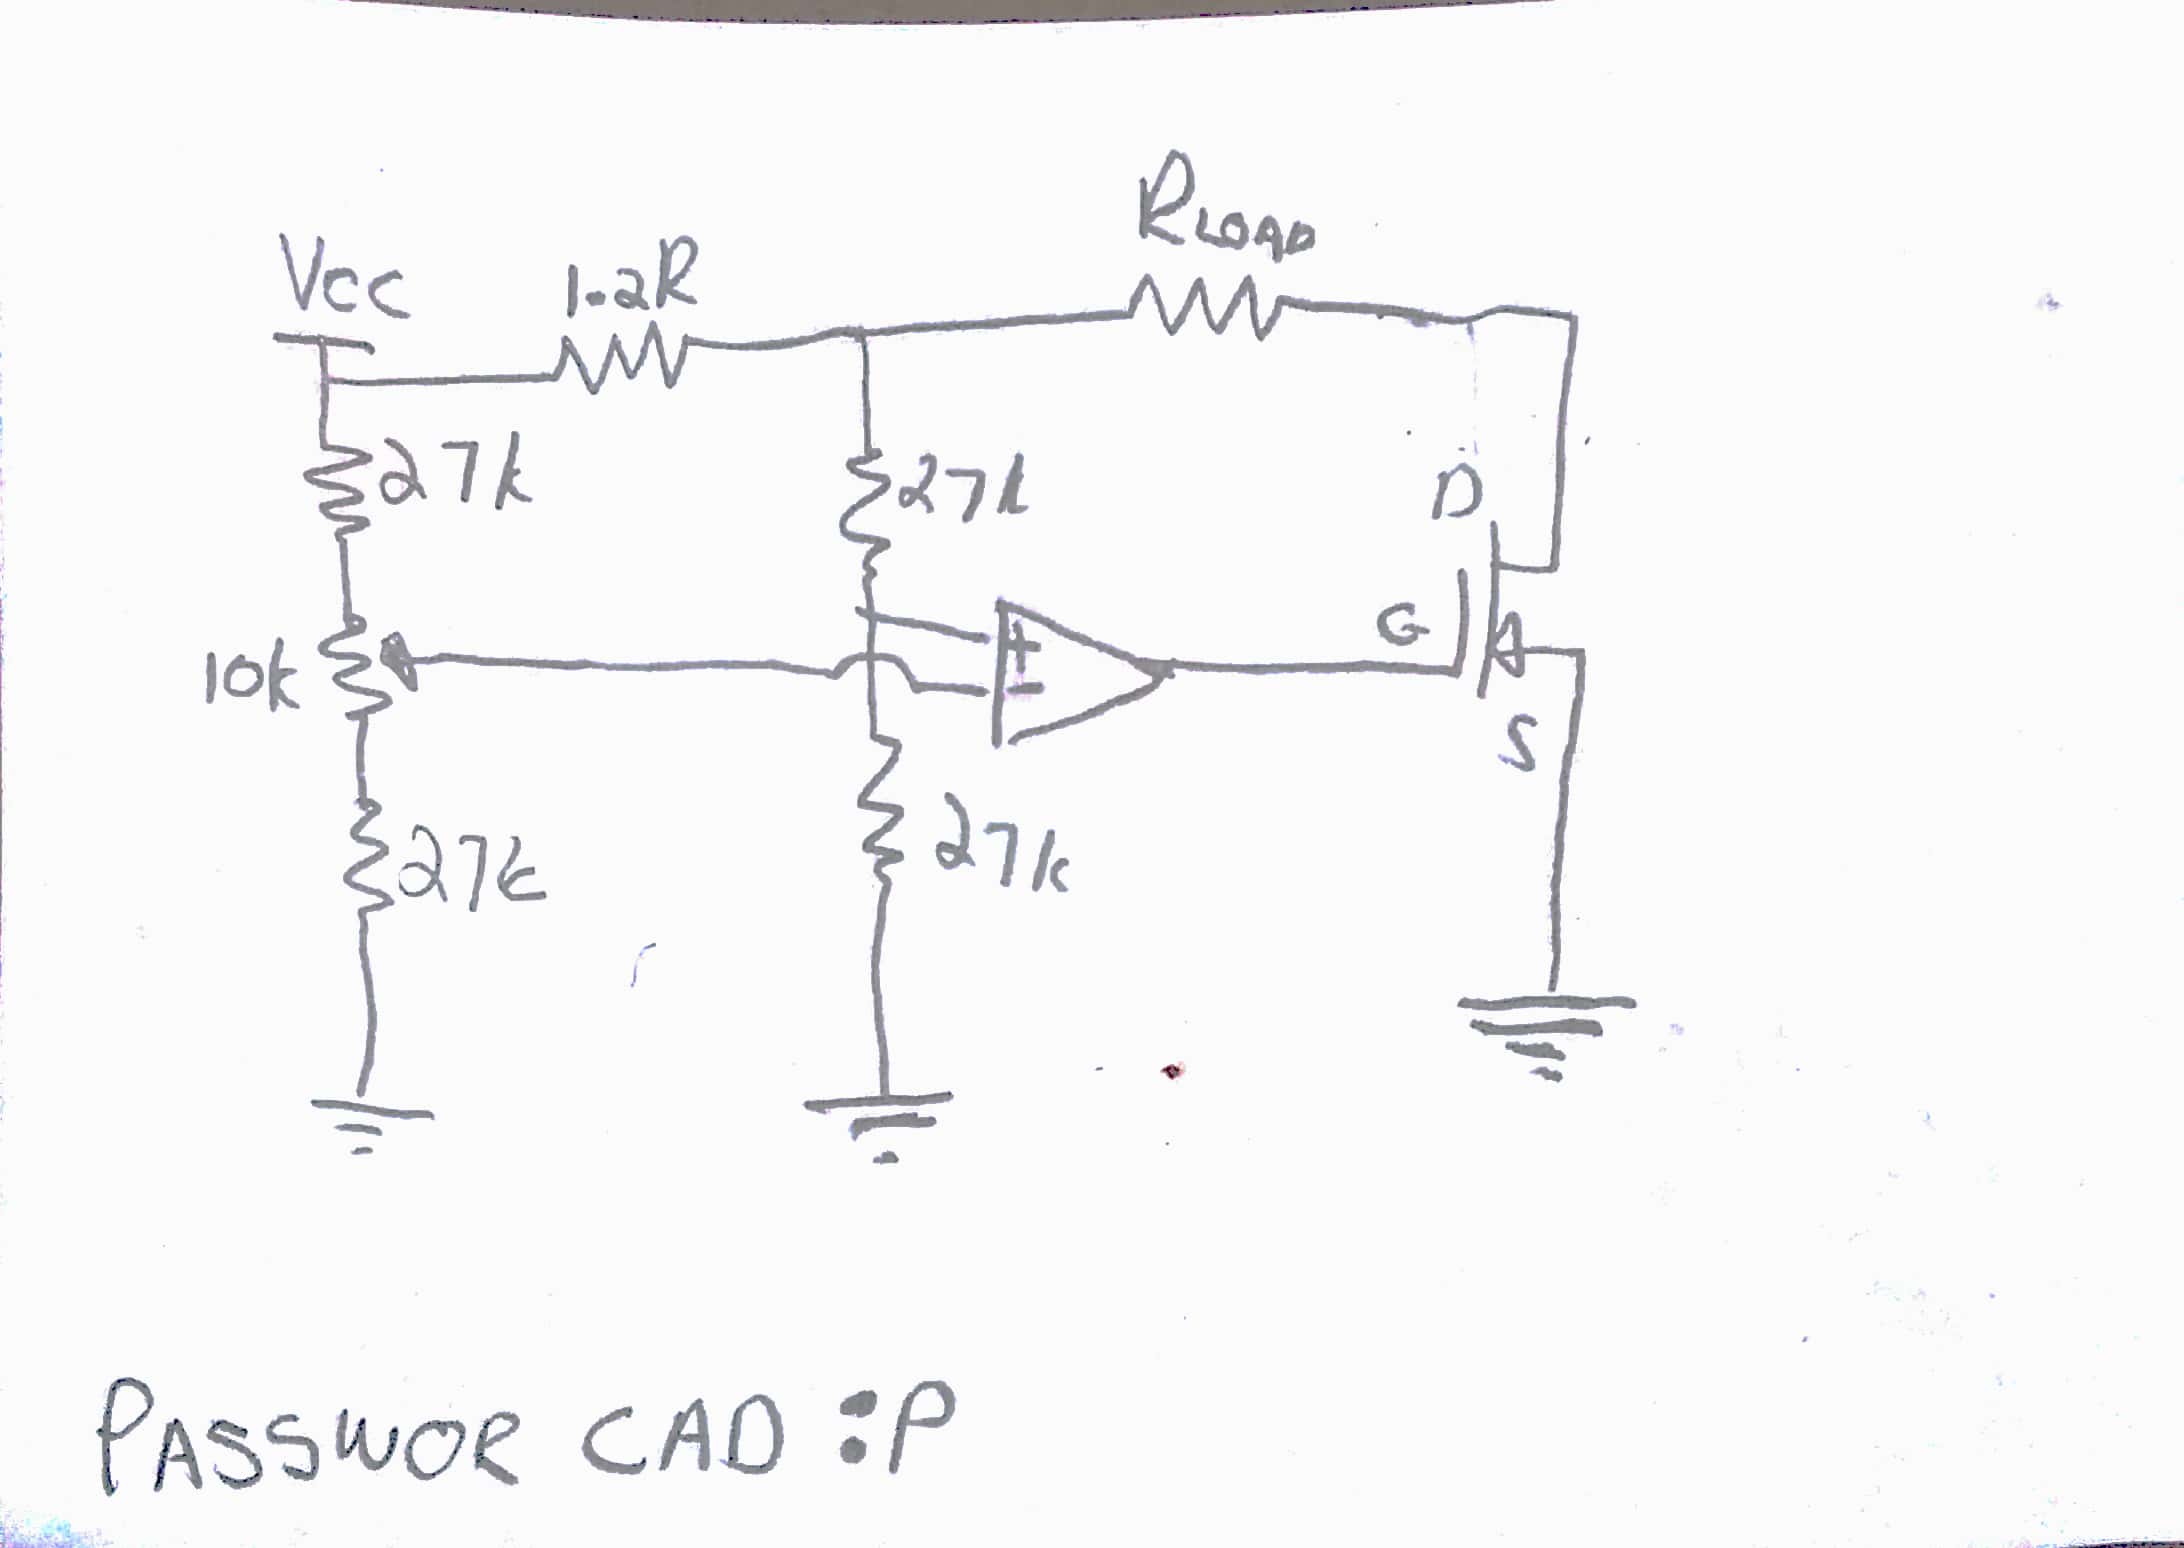 RLOAD
Vcc
1.2R
27k
27k
D
+
G
10k
-
S
27k
27k
PASSWOR CAD :P